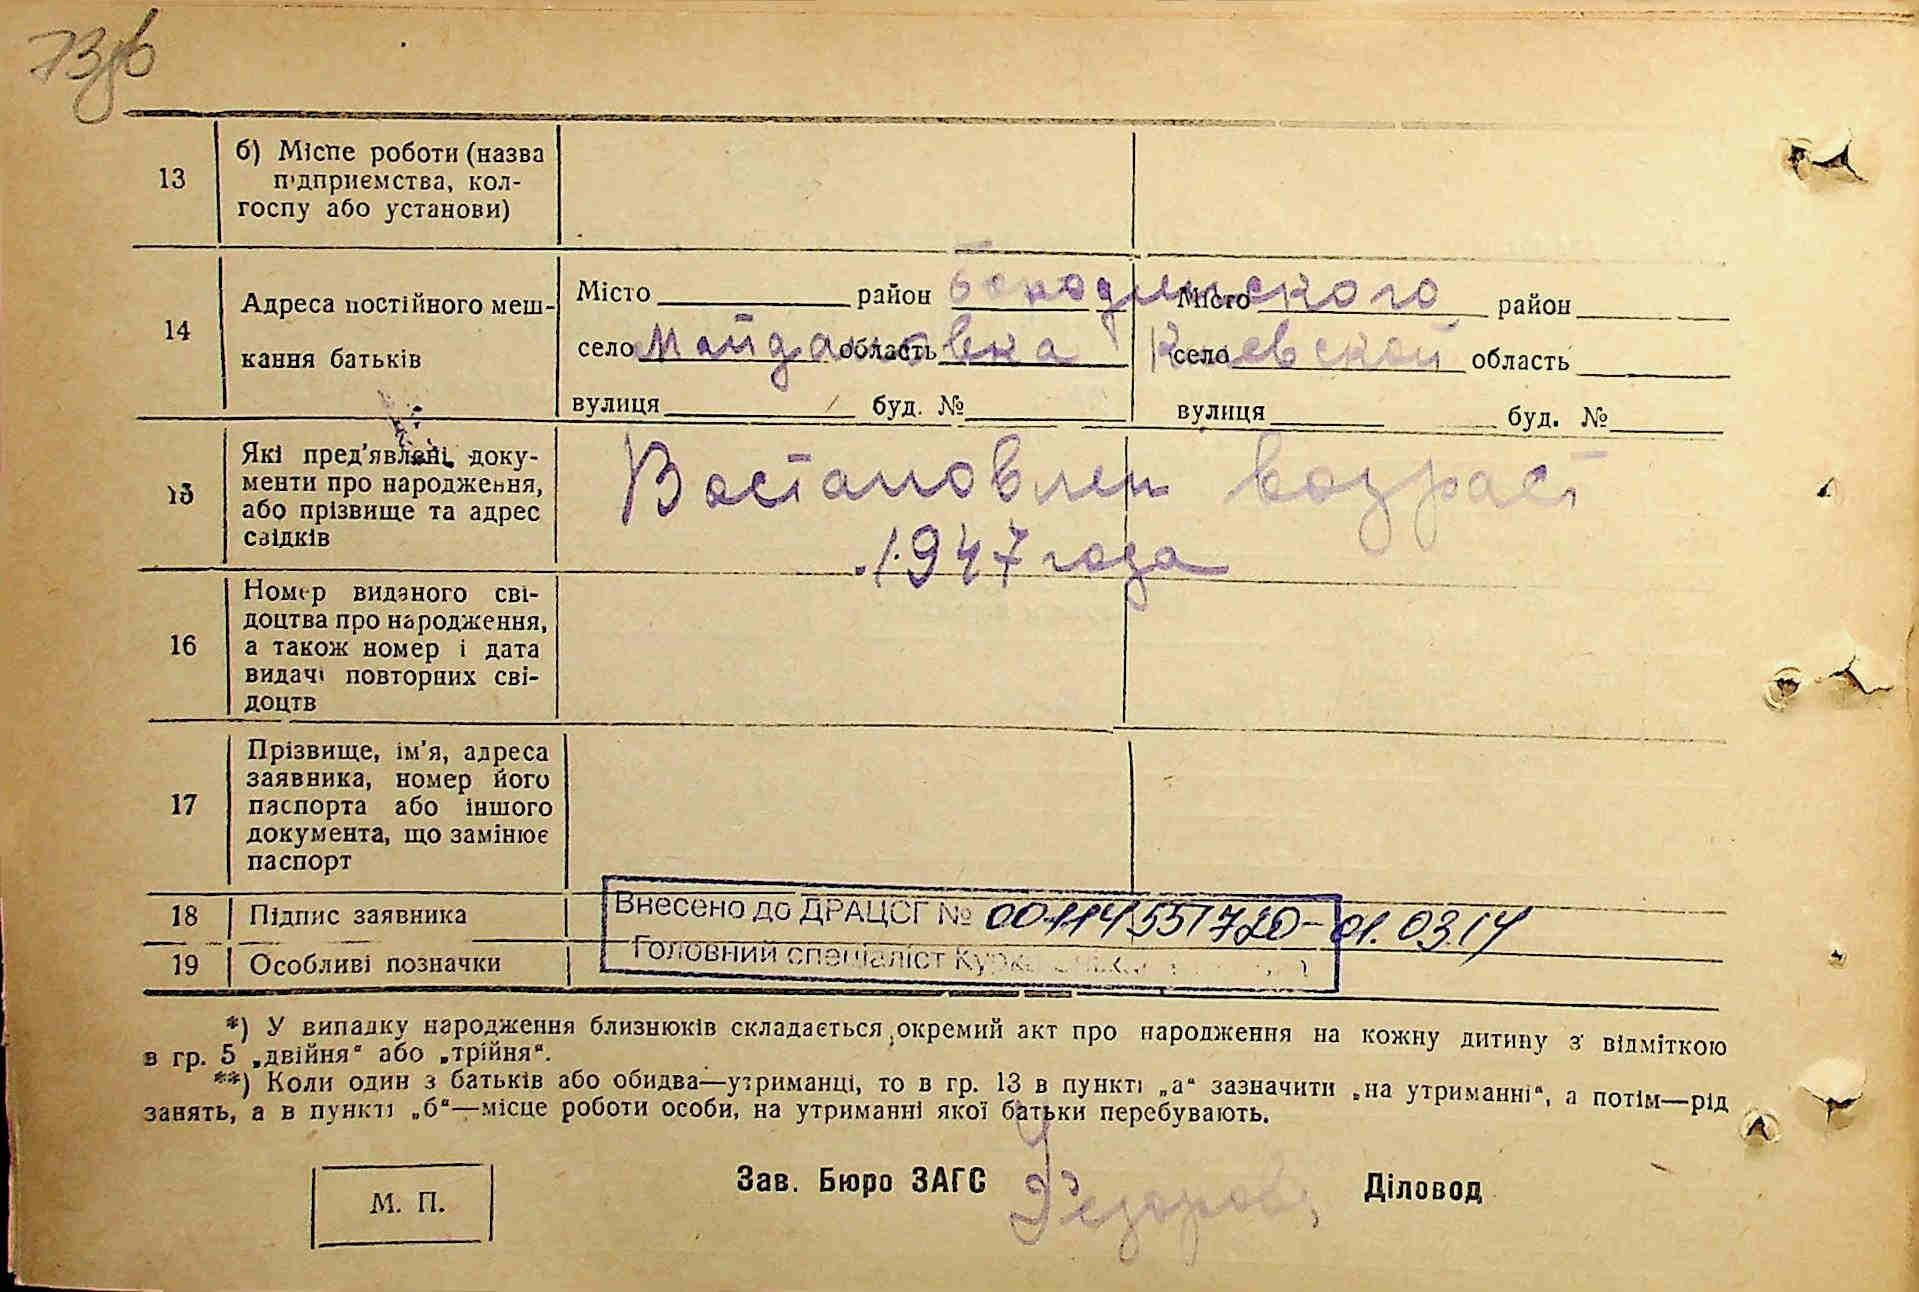 13
б) Місце роботи (назва
підприємства, кол-
госпу або установи)
14
Адреса постійного меш-
кання батьків
Місто район Бородянского Місто район
село Майдановка область село Киевской область
вулиця буд. № вулиця буд. №
15
Які пред'явлені доку-
менти про народження,
або прізвище та адрес
свідків
Востановлен возраст
1947 года
16
Номер виданого сві-
доцтва про народження,
а також номер і дата
видачі повторних сві-
доцтв
17
Прізвище, ім'я, адреса
заявника, номер його
паспорта або іншого
документа, що замінює
паспорт
18 Підпис заявника
19 Особливі позначки
Внесено до ДРАЦСГ № 00114551720-01.03.14
Головний спеціаліст
*) У випадку народження близнюків складається окремий акт про народження на кожну дитину з відміткою
в гр. 5 „двійня“ або „трійня“.
**) Коли один з батьків або обидва—утриманці, то в гр. 13 в пункті „а“ зазначити „на утриманні“, а потім—рід
занять, а в пункті „б“—місце роботи особи, на утриманні якої батьки перебувають.
М. П.
Зав. Бюро ЗАГС
Діловод